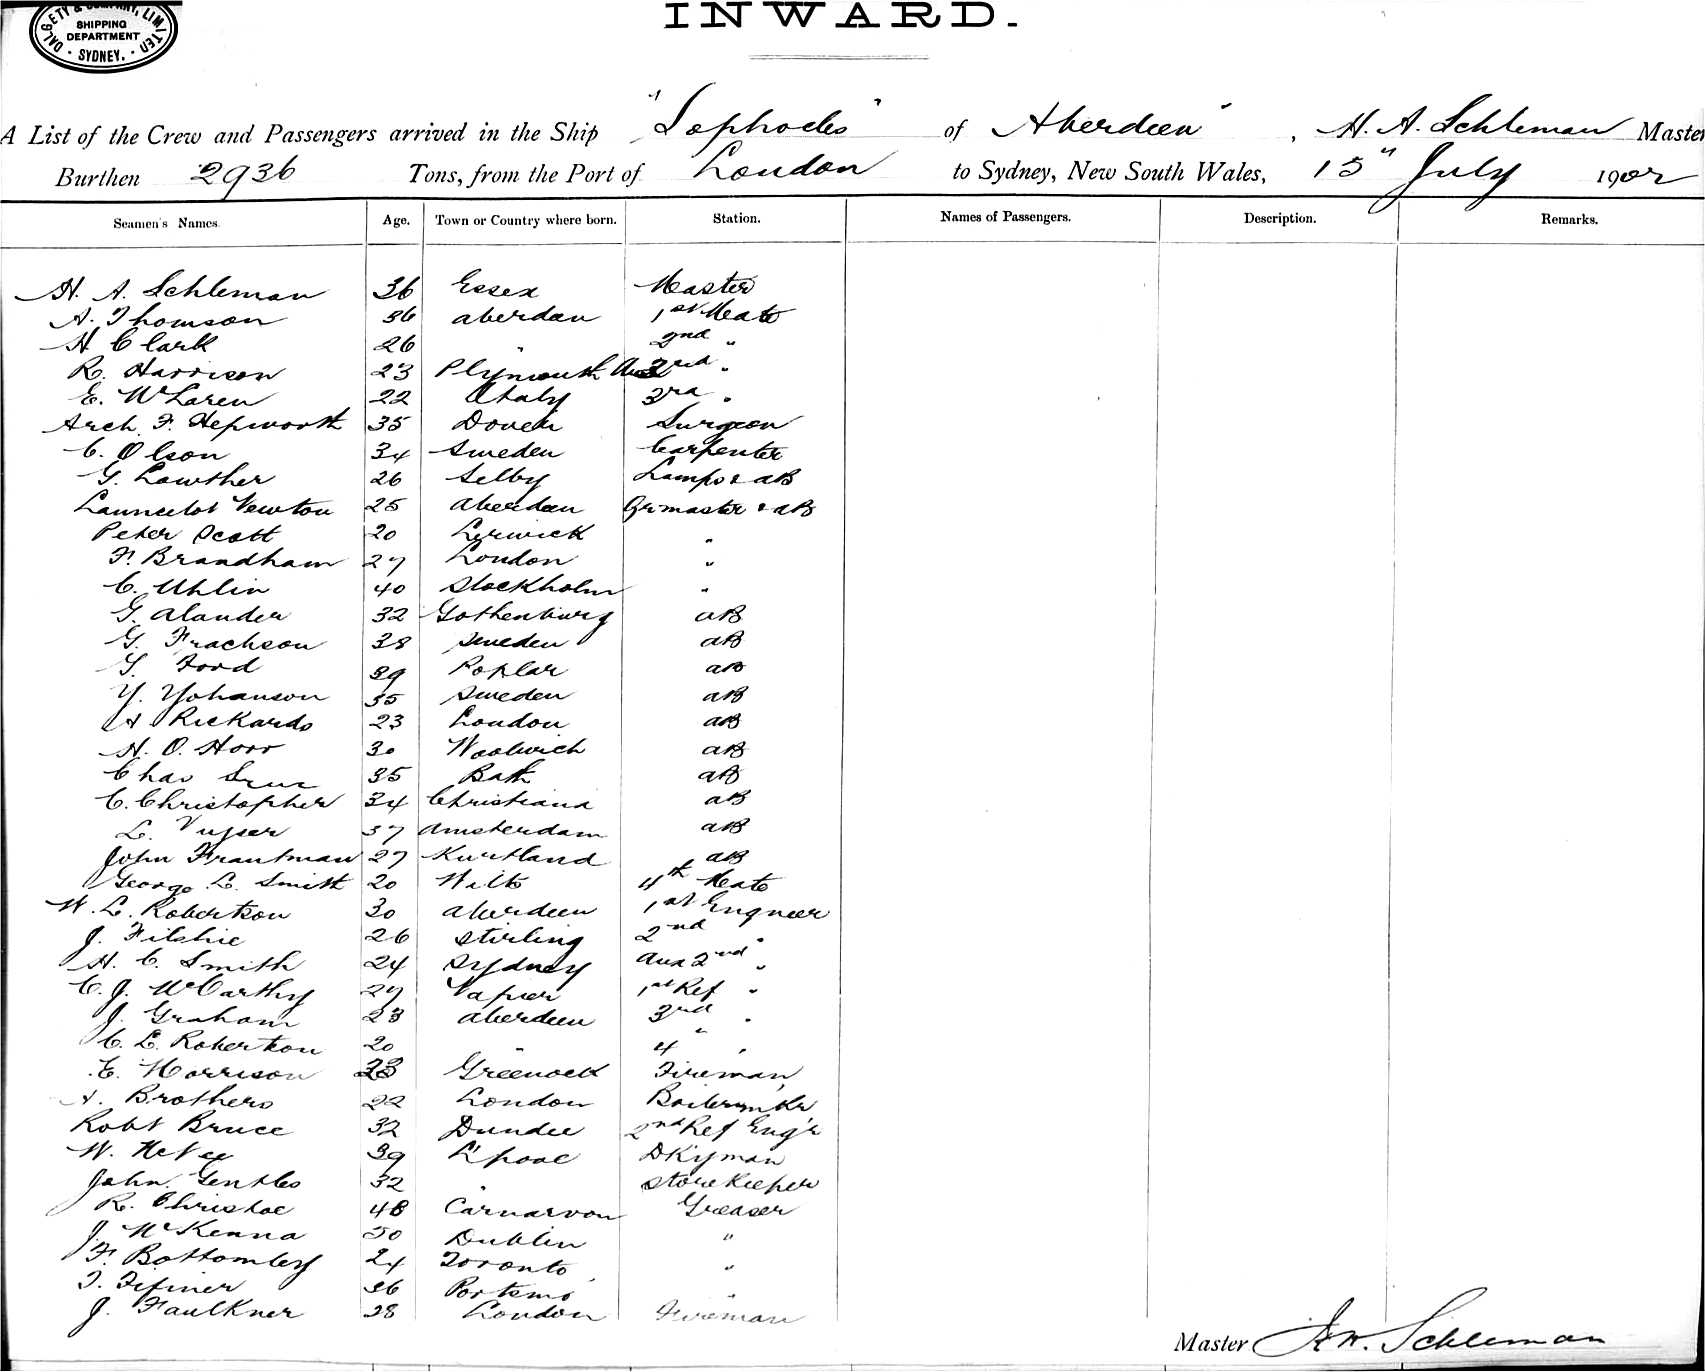 DALGETY & COMPANY, LIMITED
SHIPPING
DEPARTMENT
SYDNEY.
INWARD.
A List of the Crew and Passengers arrived in the Ship "Sophocles" of Aberdeen, H. A. Schleman Master
Burthen 2936 Tons, from the Port of London to Sydney, New South Wales, 15" July 1902
Seamen's Names. Age. Town or Country where born. Station. Names of Passengers. Description. Remarks.
H. A. Schleman 36 Essex Master
A. Thomson 36 Aberdeen 1st Mate
H Clark 26 " 2nd "
R. Harrison 23 Plymouth Aux 2nd "
E. McLaren 22 3rd "
Arch. F. Hepworth 35 Dover Surgeon
C. Olson 34 Sweden Carpenter
G. Lowther 26 Selby Lamps & AB
Launcelot Newton 25 Aberdeen Qrmaster & AB
Peter Scott 20 Lerwick "
F. Brandham 27 London "
C. Uhlin 40 Stockholm "
G. Alander 32 Gothenburg AB
G. Frachson 38 Sweden AB
G. Ford 39 Poplar AB
Y. Yohanson 35 Sweden AB
A Rickards 23 London AB
H. O. Horr 30 Woolwich AB
Chas 35 Bath AB
C. Christopher 34 Christiana AB
L. Vuyser 37 Amsterdam AB
John Frautman 27 Kurtland AB
George L. Smith 20 Wilts 4th Mate
W. L. Robertson 30 Aberdeen 1st Engineer
J. Filshie 26 Stirling 2nd "
H. C. Smith 24 Sydney Aux 2nd "
C. J. McCarthy 27 Napier 1st Ref "
J. Graham 23 Aberdeen 3rd "
C. E. Robertson 20 " 4 " "
E. Morrison 23 Greenock Fireman
A. Brothers 22 London Boilermkr
Robt Bruce 32 Dundee 2nd Ref Eng'r
W. McVee 39 L'pool Dkyman
John Gentles 32 " Storekeeper
R. Christoe 48 Carnarvon Greaser
J. McKenna 30 Dublin "
F. Bottomley 24 Toronto "
T. 26 Portsmo "
J. Faulkner 28 London Fireman
Master H. A. Schleman